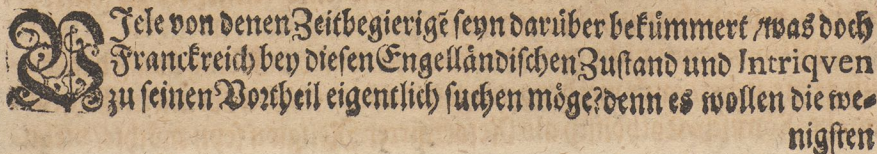 VJele von denen Zeitbegierigẽ ſeyn daruͤber bekuͤmmert / was doch
Franckreich bey dieſen Engellaͤndiſchen Zuſtand und Intriqven
zu ſeinen Vortheil eigentlich ſuchen moͤge? denn es wollen die we-
nigſten